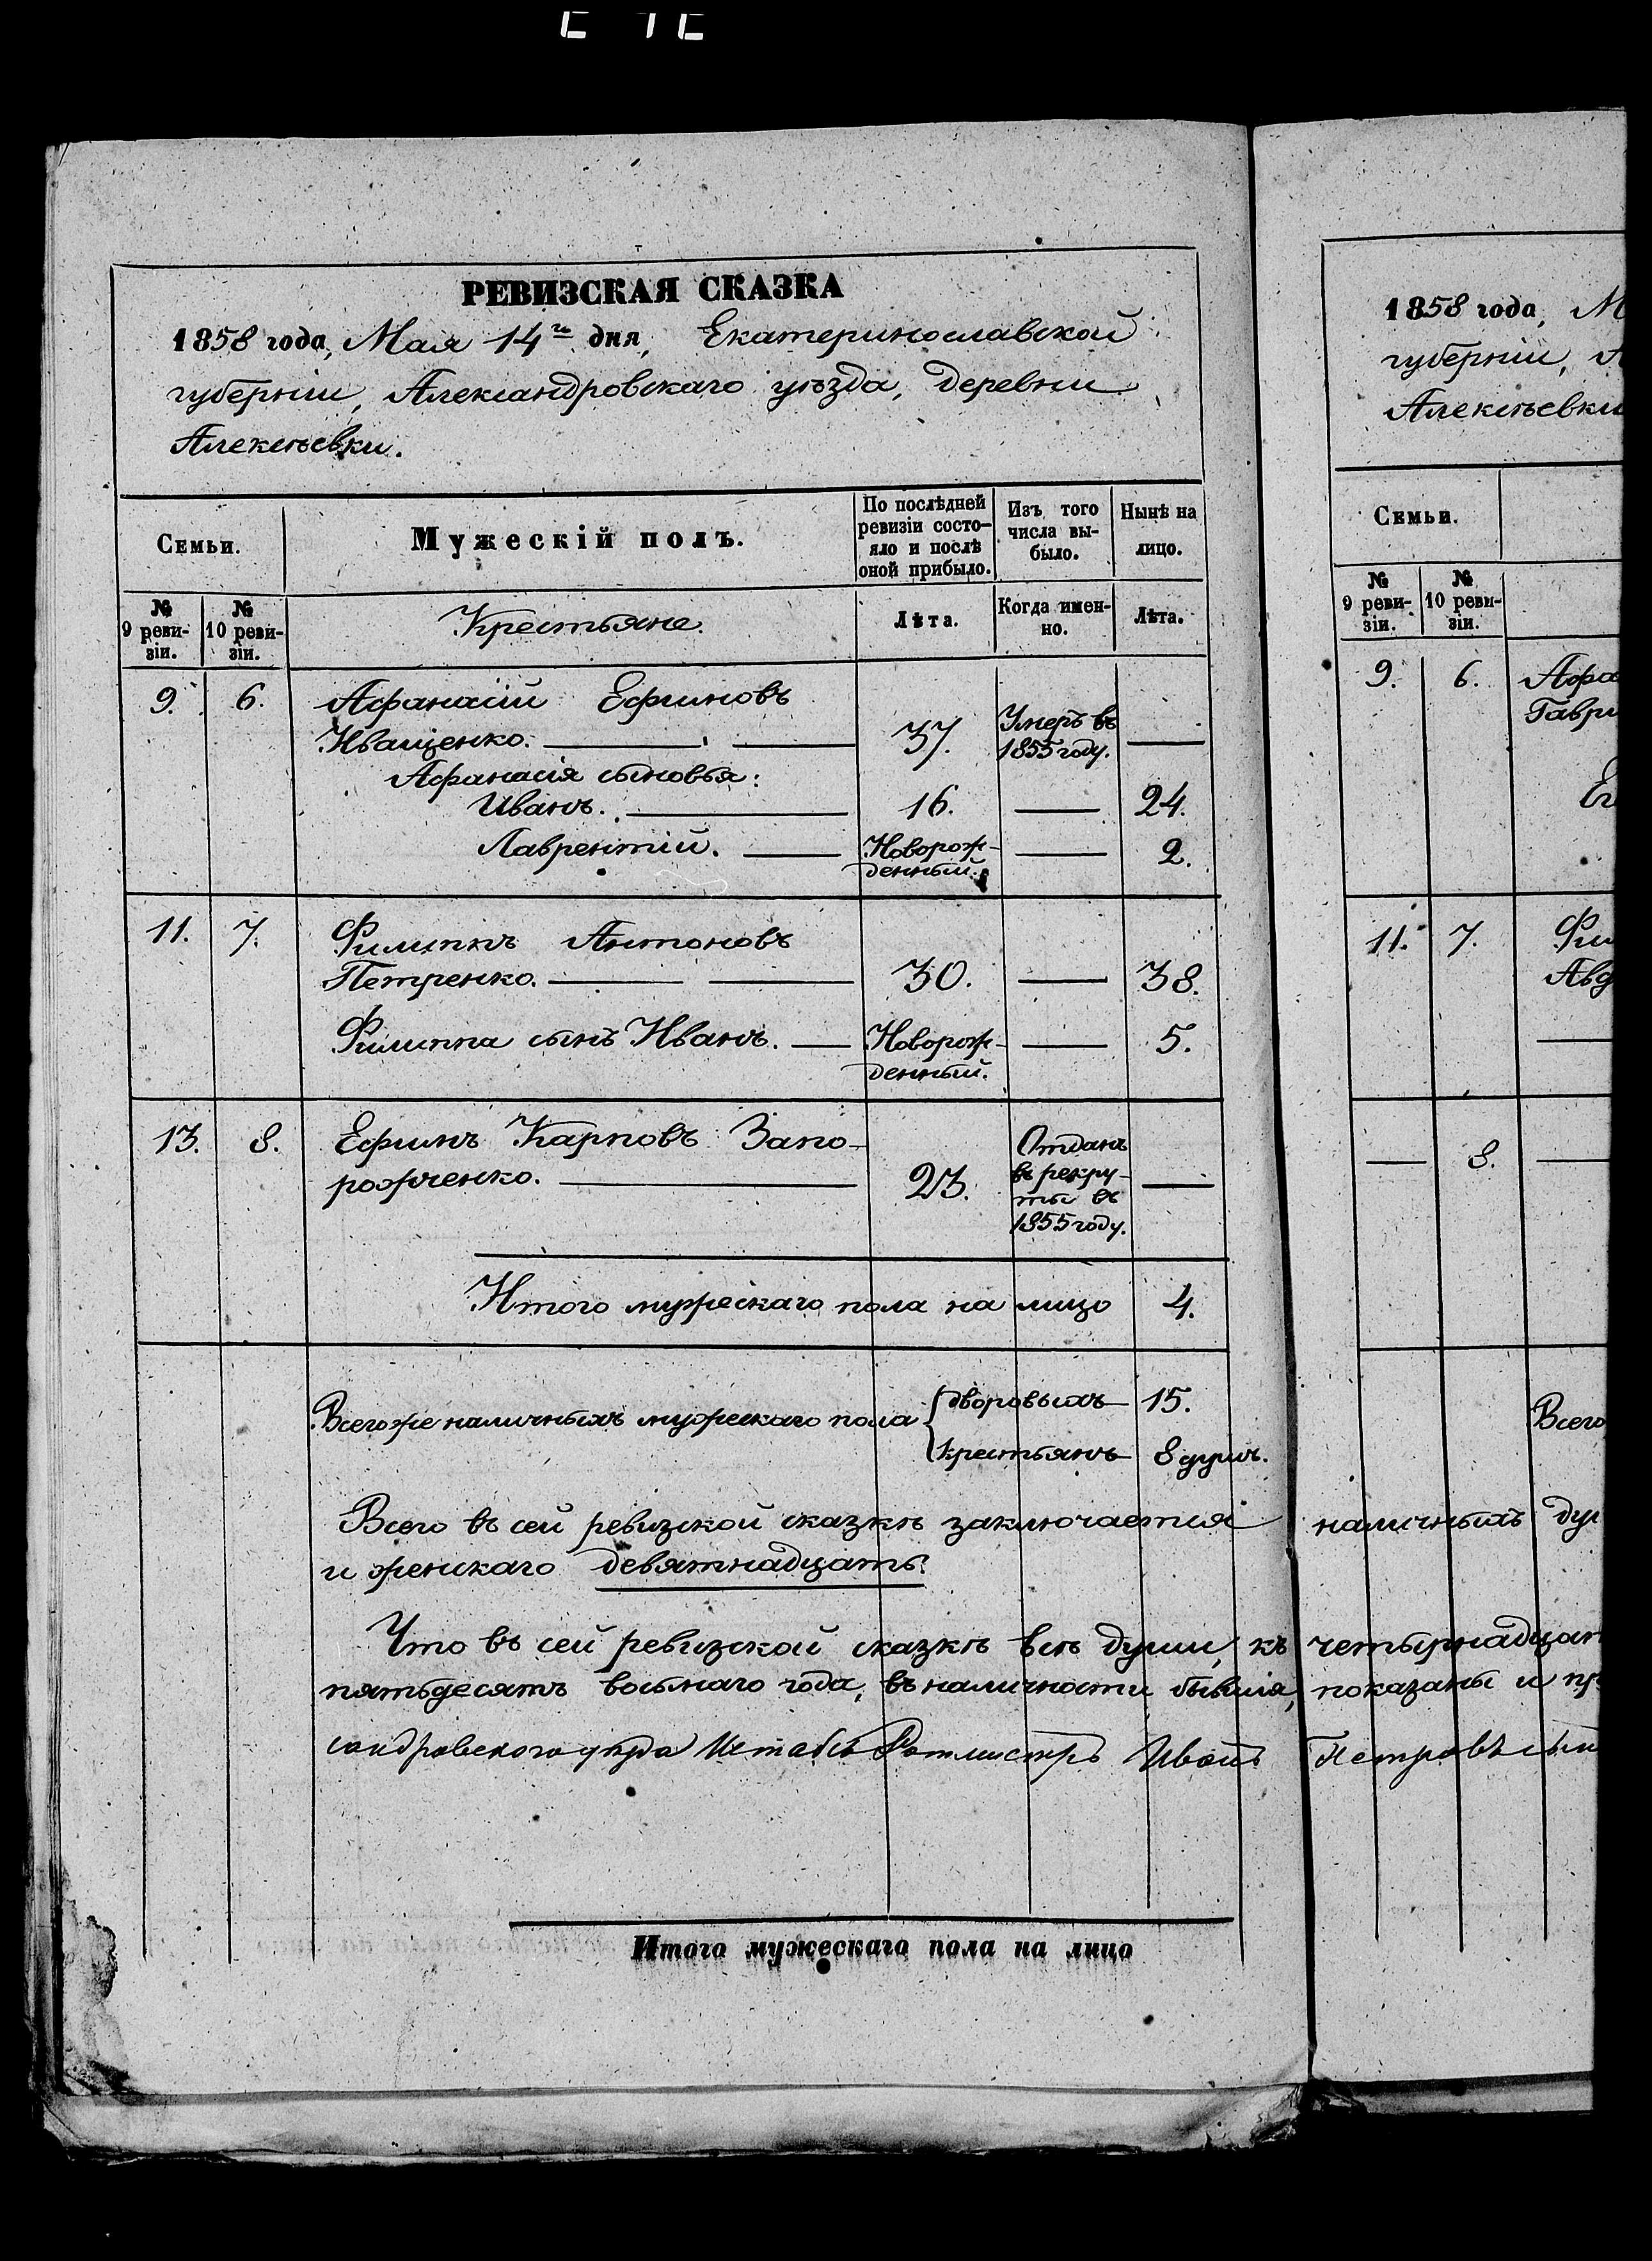 РЕВИЗСКАЯ СКАЗКА
1858 года, Мая 14го дня, Екатеринославской
губернiи, Александровскаго уѣзда, деревни
Алексѣевки.
Семьи.
Мужескiй полъ.
По послѣдней ревизiи состо-
яло и послѣ оной прибыло.
Изъ того числа вы-
было.
Нынѣ на лицо.
№ 9 реви-
зiи.
№ 10 реви-
зiи.
Крестьяне.
Лѣта.
Когда имен-
но.
Лѣта.
9. 6. Афанасiй Ефимовъ
Иващенко. 37. Умеръ въ 1855 году. —
Афанасiя сыновья:
Иванъ. 16. — 24.
Лаврентiй. Новорож-
денный. — 2.
11. 7. Филиппъ Антоновъ
Петренко. 30. — 38.
Филиппа сынъ Иванъ. Новорож-
денный. — 5.
13. 8. Ефимъ Карповъ Запо-
рожченко. 23. Отданъ
въ рекру-
ты въ
1855 году. —
Итого мужескаго пола на лицо 4.
Всего же наличныхъ мужескаго пола { дворовыхъ 15.
крестьянъ 8 душъ.
Всего въ сей ревизской сказкѣ заключается
и женскаго девятнадцать.
Что въ сей ревизской сказкѣ всѣ души, къ
пятьдесятъ восьмаго года, въ наличности бывшiя,
сандровского уѣзда Штабсъ Ротмистръ Иванъ
Итого мужескаго пола на лицо
1858 года, М
губернiи, А
Алексѣевки
Семьи.
№ 9 реви-
зiи.
№ 10 реви-
зiи.
9. 6. Афа
Гаври
Ег
11. 7. Фи
Авд
— 8. —
Всего
наличныхъ душ
четырнадцат
показаны и пр
Петровъ сын